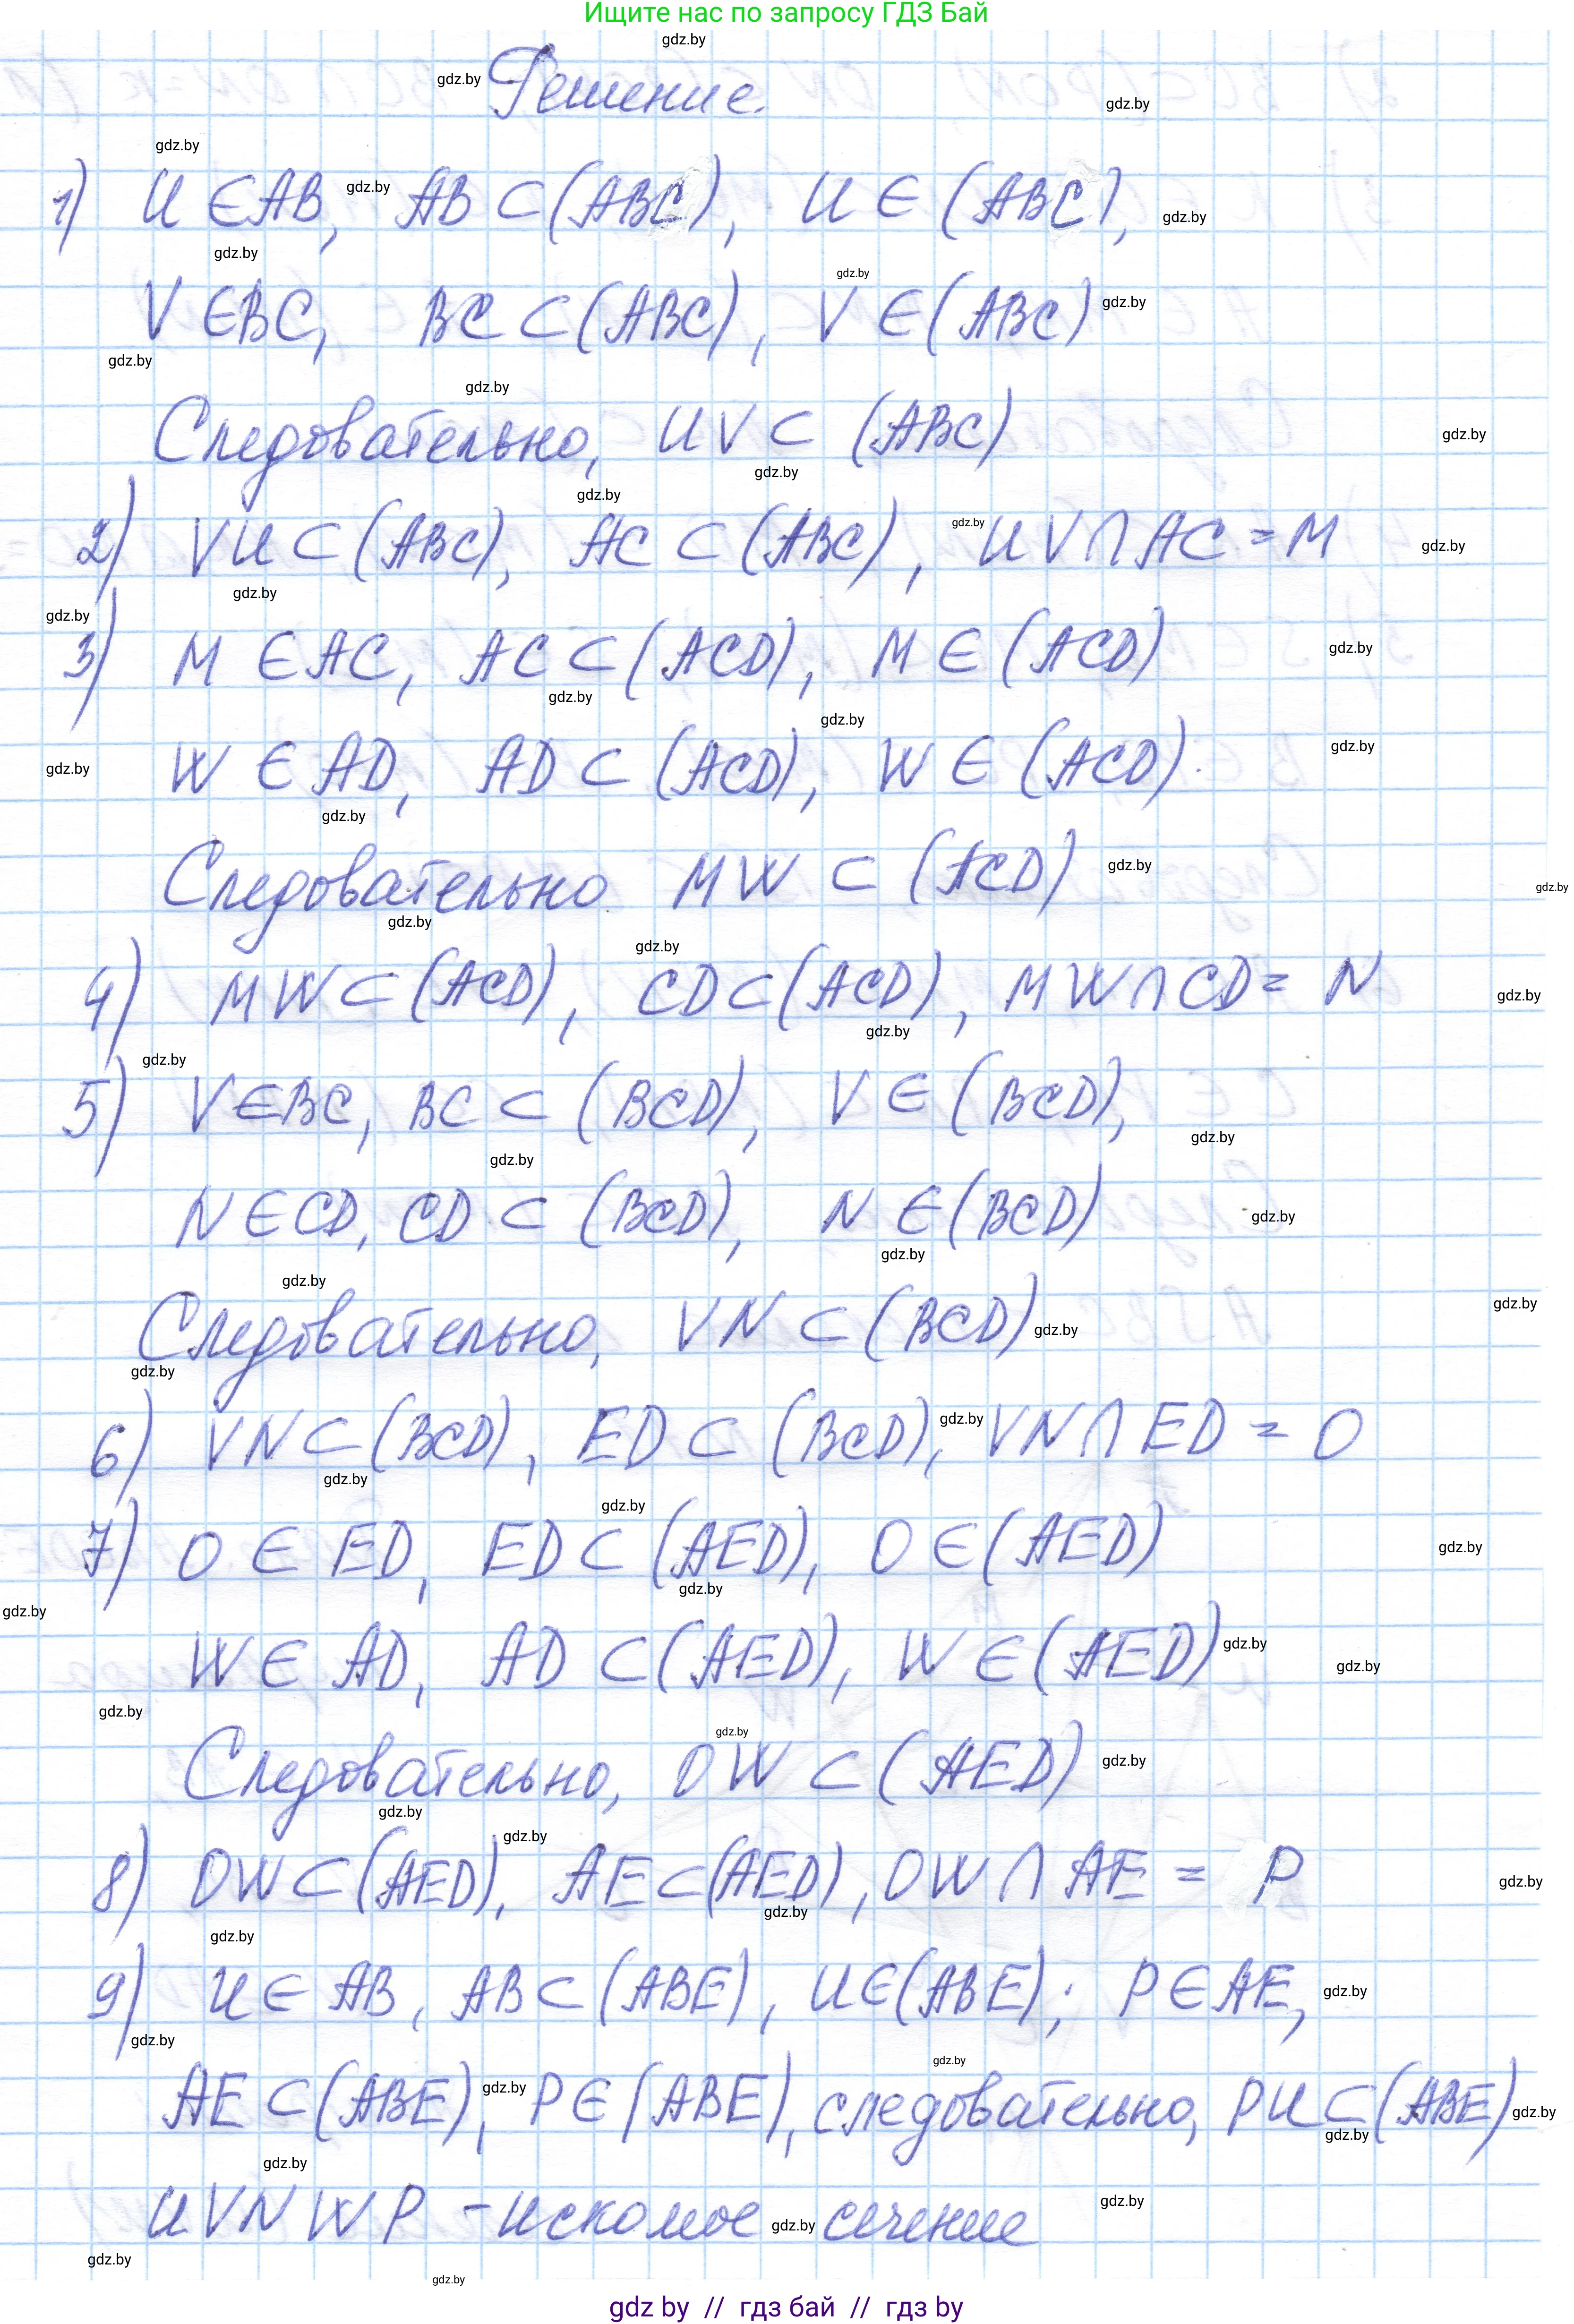 Ищите нас по запросу ГДЗ Бай
Решение.
1) U ∈ AB, AB ⊂ (ABC), U ∈ (ABC),
V ∈ BC, BC ⊂ (ABC), V ∈ (ABC)
Следовательно, UV ⊂ (ABC)
2) VU ⊂ (ABC), AC ⊂ (ABC), UV ∩ AC = M
3) M ∈ AC, AC ⊂ (ACD), M ∈ (ACD)
W ∈ AD, AD ⊂ (ACD), W ∈ (ACD).
Следовательно MW ⊂ (ACD)
4) MW ⊂ (ACD), CD ⊂ (ACD), MW ∩ CD = N
5) V ∈ BC, BC ⊂ (BCD), V ∈ (BCD),
N ∈ CD, CD ⊂ (BCD), N ∈ (BCD)
Следовательно, VN ⊂ (BCD)
6) VN ⊂ (BCD), ED ⊂ (BCD), VN ∩ ED = O
7) O ∈ ED, ED ⊂ (AED), O ∈ (AED)
W ∈ AD, AD ⊂ (AED), W ∈ (AED)
Следовательно, OW ⊂ (AED)
8) OW ⊂ (AED), AE ⊂ (AED), OW ∩ AE = P
9) U ∈ AB, AB ⊂ (ABE), U ∈ (ABE); P ∈ AE,
AE ⊂ (ABE), P ∈ (ABE), следовательно, PU ⊂ (ABE)
UVNWP - искомое сечение
gdz by // гдз бай // гдз by